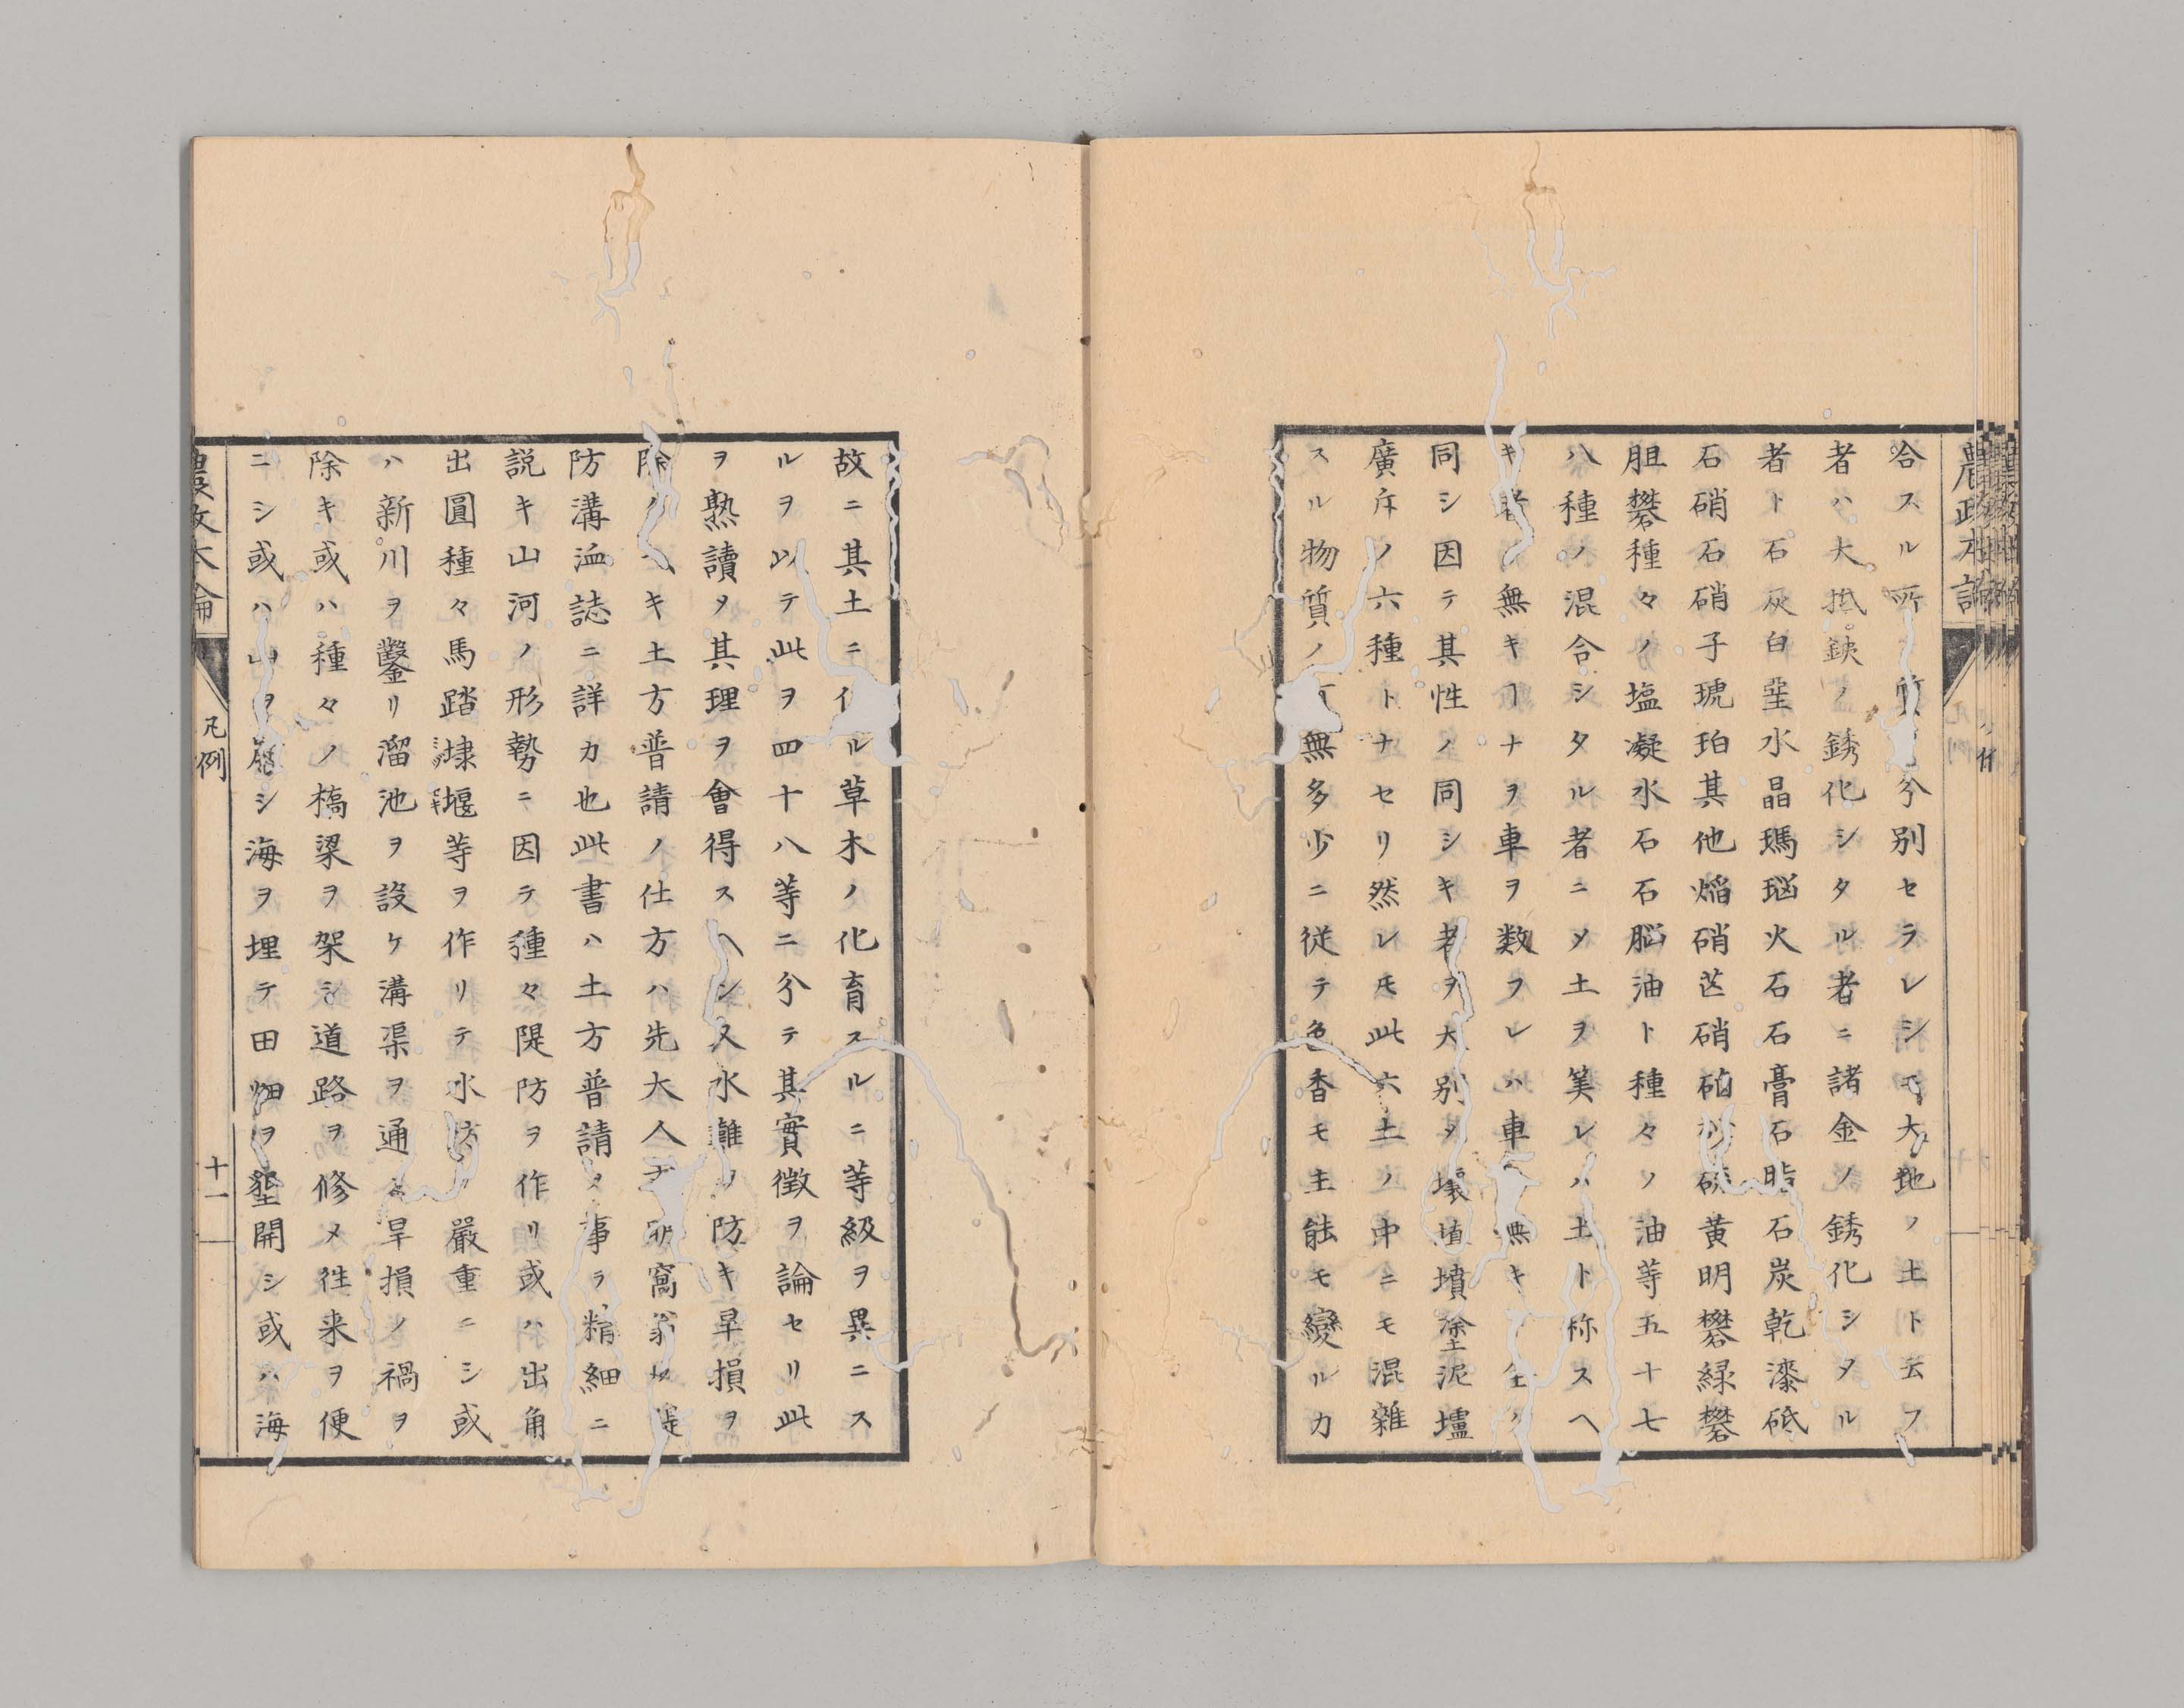 農政本論
合スル所 質 分別セラレシモ大地ノ土ト云フ
者ハ大抵鉄ノ銹化シタル者ニ諸金ノ銹化シタル
者ト石灰白堊水晶瑪瑙火石石膏石脂石炭乾漆砥
石硝石硝子琥珀其他焔硝芒硝硇砂硫黄明礬緑礬
胆礬種々ノ塩凝水石石脳油ト種々ノ油等五十七
八種ノ混合シタル者ニ〆土ヲ美レハ土ト称スヘ
キ者無キヿナヲ車ヲ数フレハ車 無キ 全ク
同シ因テ其性ノ同シキ者ヲ大別〆壌埴墳塗泥壚
廣斥ノ六種トナセリ然レ𪜈此六土ノ中ニモ混雑
スル物質ノ 無多少ニ従テ色香モ主能モ變ルカ
故ニ其土ニ ル草木ノ化育スルニ等級ヲ異ニス
ルヲ以テ此ヲ四十八等ニ分テ其實徴ヲ論セリ此
ヲ熟讀〆其理ヲ會得スヘシ又水難ヲ防キ旱損ヲ
除 キ土方普請ノ仕方ハ先大人 窩翁 堤
防溝洫誌ニ詳カ也此書ハ土方普請〆事ラ精細ニ
説キ山河ノ形勢ニ因テ種々隄防ヲ作リ或ハ出角
出圓種々馬踏埭堰等ヲ作リテ水 嚴重ニシ或
ハ新川ヲ鑿リ溜池ヲ設ケ溝渠ヲ通 旱損ノ禍ヲ
除キ或ハ種々ノ橋梁ヲ架シ道路ヲ修メ往来ヲ便
ニシ或ハ山ヲ シ海ヲ埋テ田畑ヲ墾開シ或ハ海
農政本論
凡例
十一